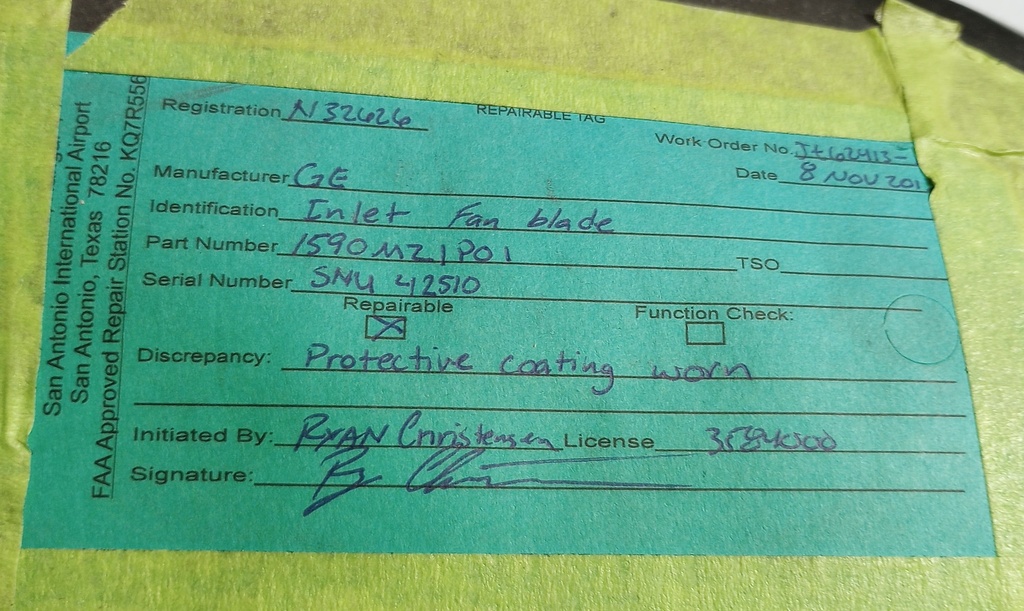 San Antonio International Airport
San Antonio, Texas 78216
FAA Approved Repair Station No. KQ7R556
REPAIRABLE TAG
Registration N32626
Work Order No.
Date 8 NOV 201
Manufacturer GE
Identification Inlet Fan blade
Part Number 1590M21P01 TSO
Serial Number SNU 42510
Repairable Function Check:
Discrepancy: Protective coating worn
Initiated By: RYAN Christensen License
Signature: